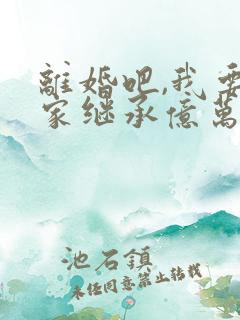 離婚吧,我要
家继承億萬
池石鎮
未任同意禁止转载